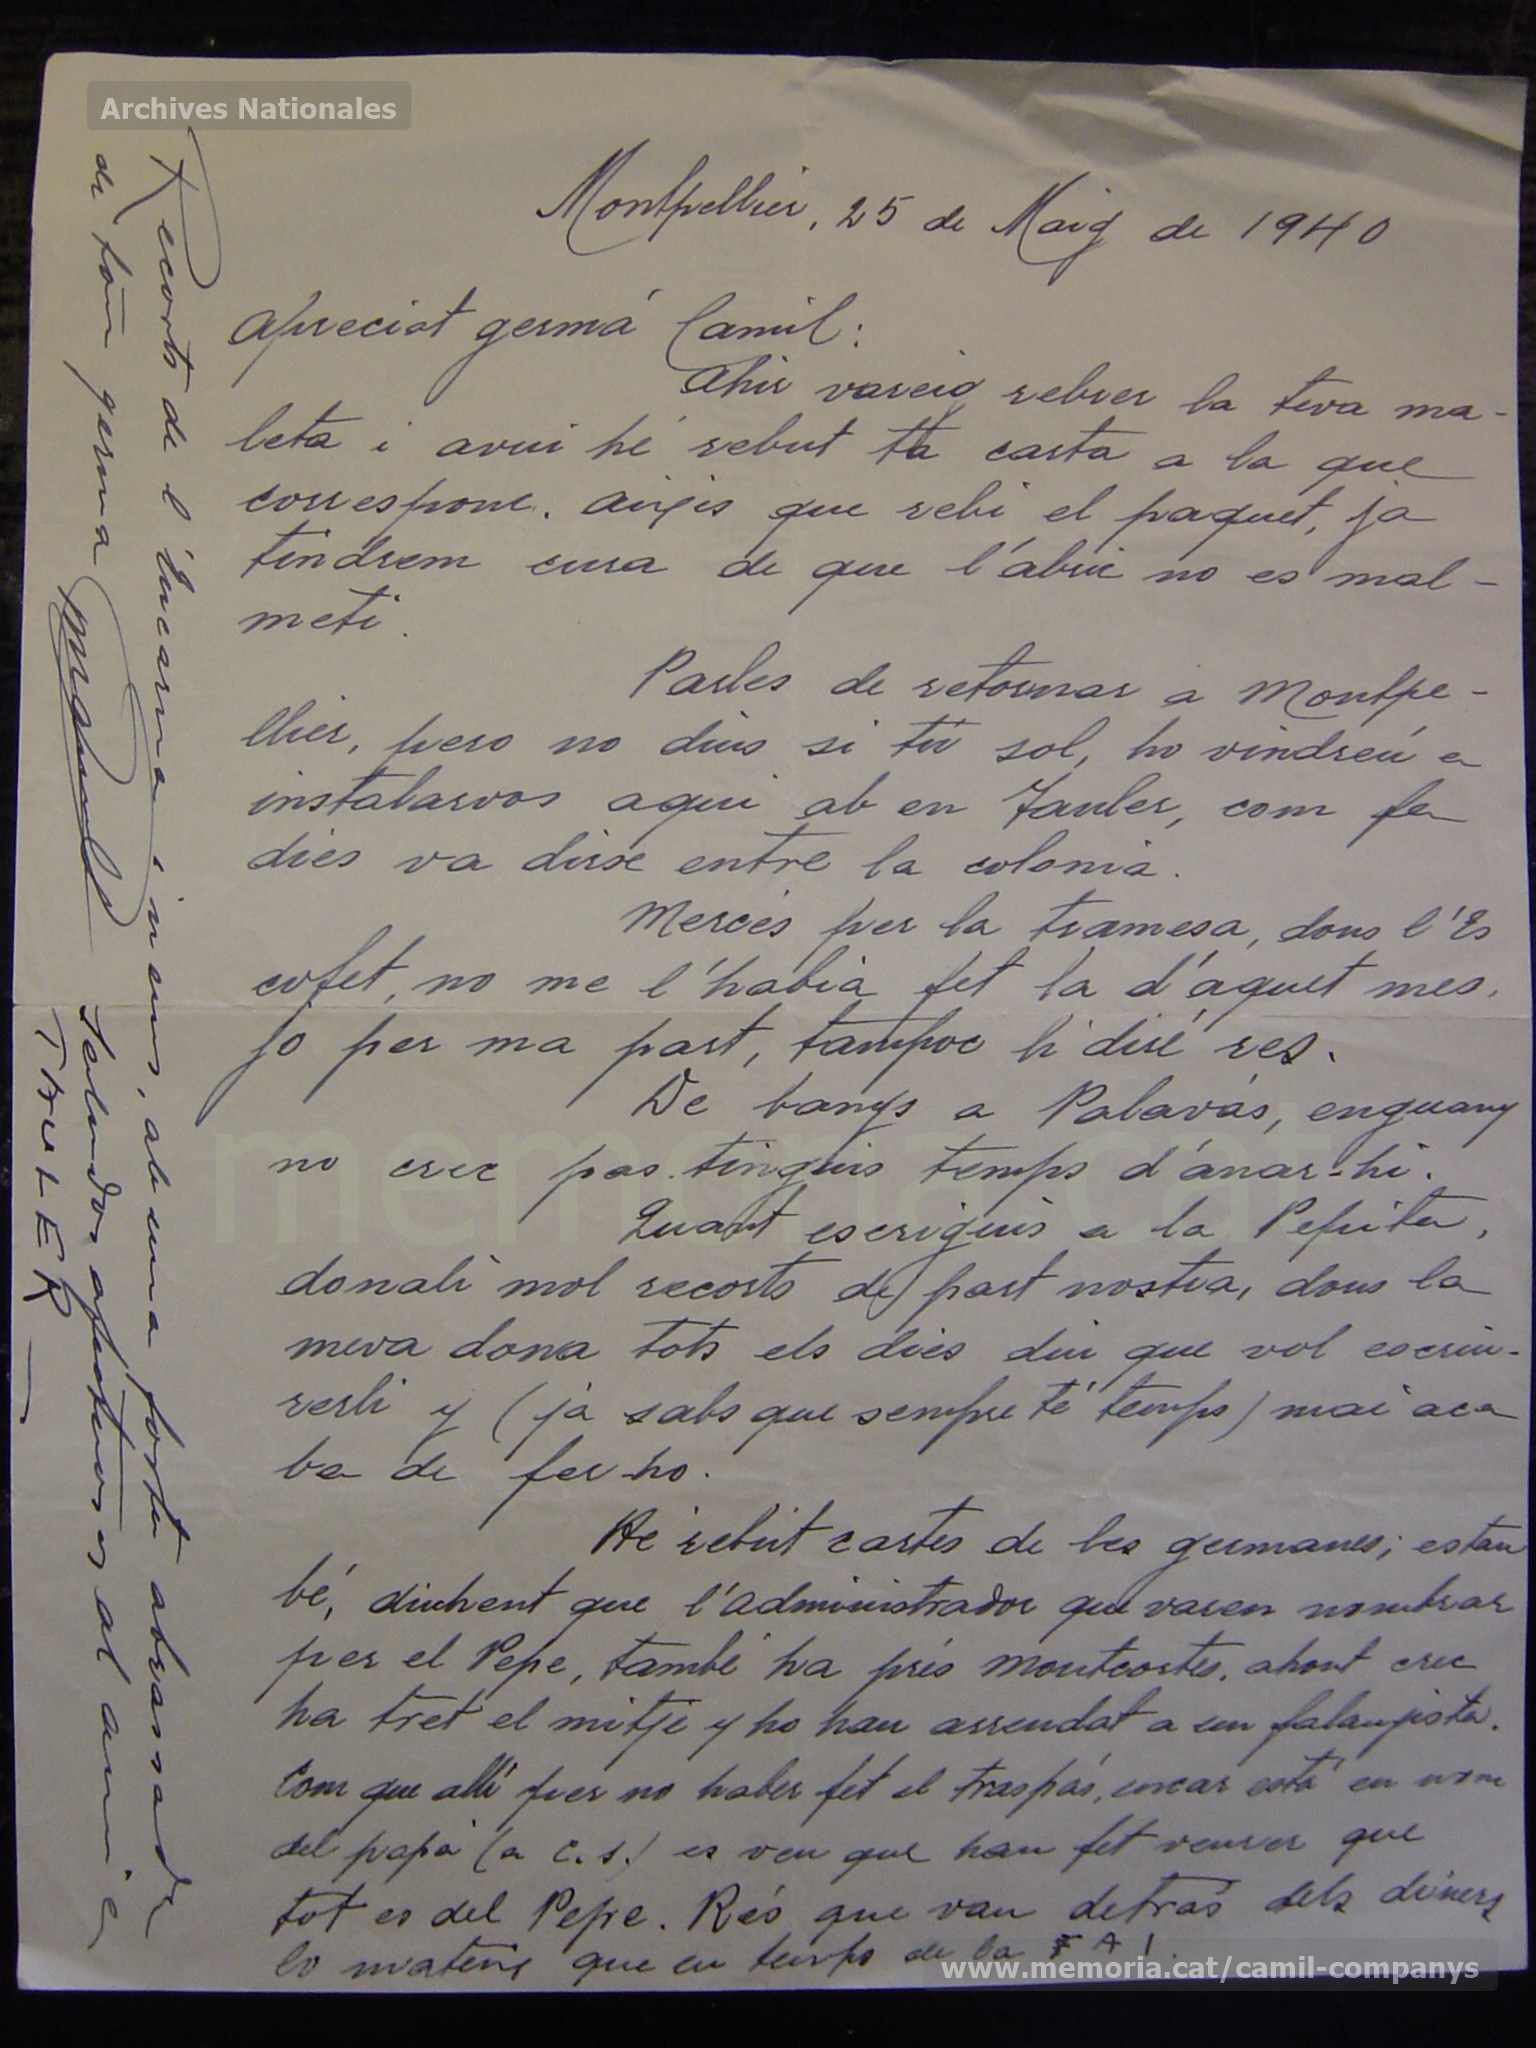 Archives Nationales
Montpellier, 25 de Maig de 1940
Apreciat germá Camil:
Ahir vareig rebrer la teva ma-
leta i avui hé rebut ta carta a la que
correspone. Aixis que rebi el paquet, ja
tindrem cura de que l'abric no es mal-
meti.
Parles de retornar a Montpe-
llier, pero no dius si tú sol, ho vindreu a
instalarvos aqui ab en Tauler, com fa
dies va dirse entre la colonia.
Mercés per la tramesa, dons l'Es
cofet, no me l'habia fet la d'aquet mes.
jo per ma part, tampoc li diré res.
De banys a Palavás, enguany
no crec pas tinguis temps d'anar-hi.
Quant escriguis a la Pepita,
donali mol recorts de part nostra, dons la
meva dona tots els dies diu que vol escriu-
rerli y (ja sabs que sempre té temps) mai aca
ba de fer-ho.
He rebut cartes de les germanes; estan
bé, diuhent que l'administrador que varen nombrar
per el Pepe, també ha prés Montcortés, ahont crec
ha tret el mitjé y ho han arrendat a un falangista.
Com que allí per no haber fet el traspás, encar está en nom
del papá (a C.S.) es veu que han fet veurer que
tot es del Pepe. Rés que van detrás dels diners
lo mateix que en temps de la FAI.
Recorts de l'Encarna i nens, ab una forta abrassada
de ton germa Manuel
Saludos afectuosos al amic
TAULER
memoria.cat
www.memoria.cat/camil-companys